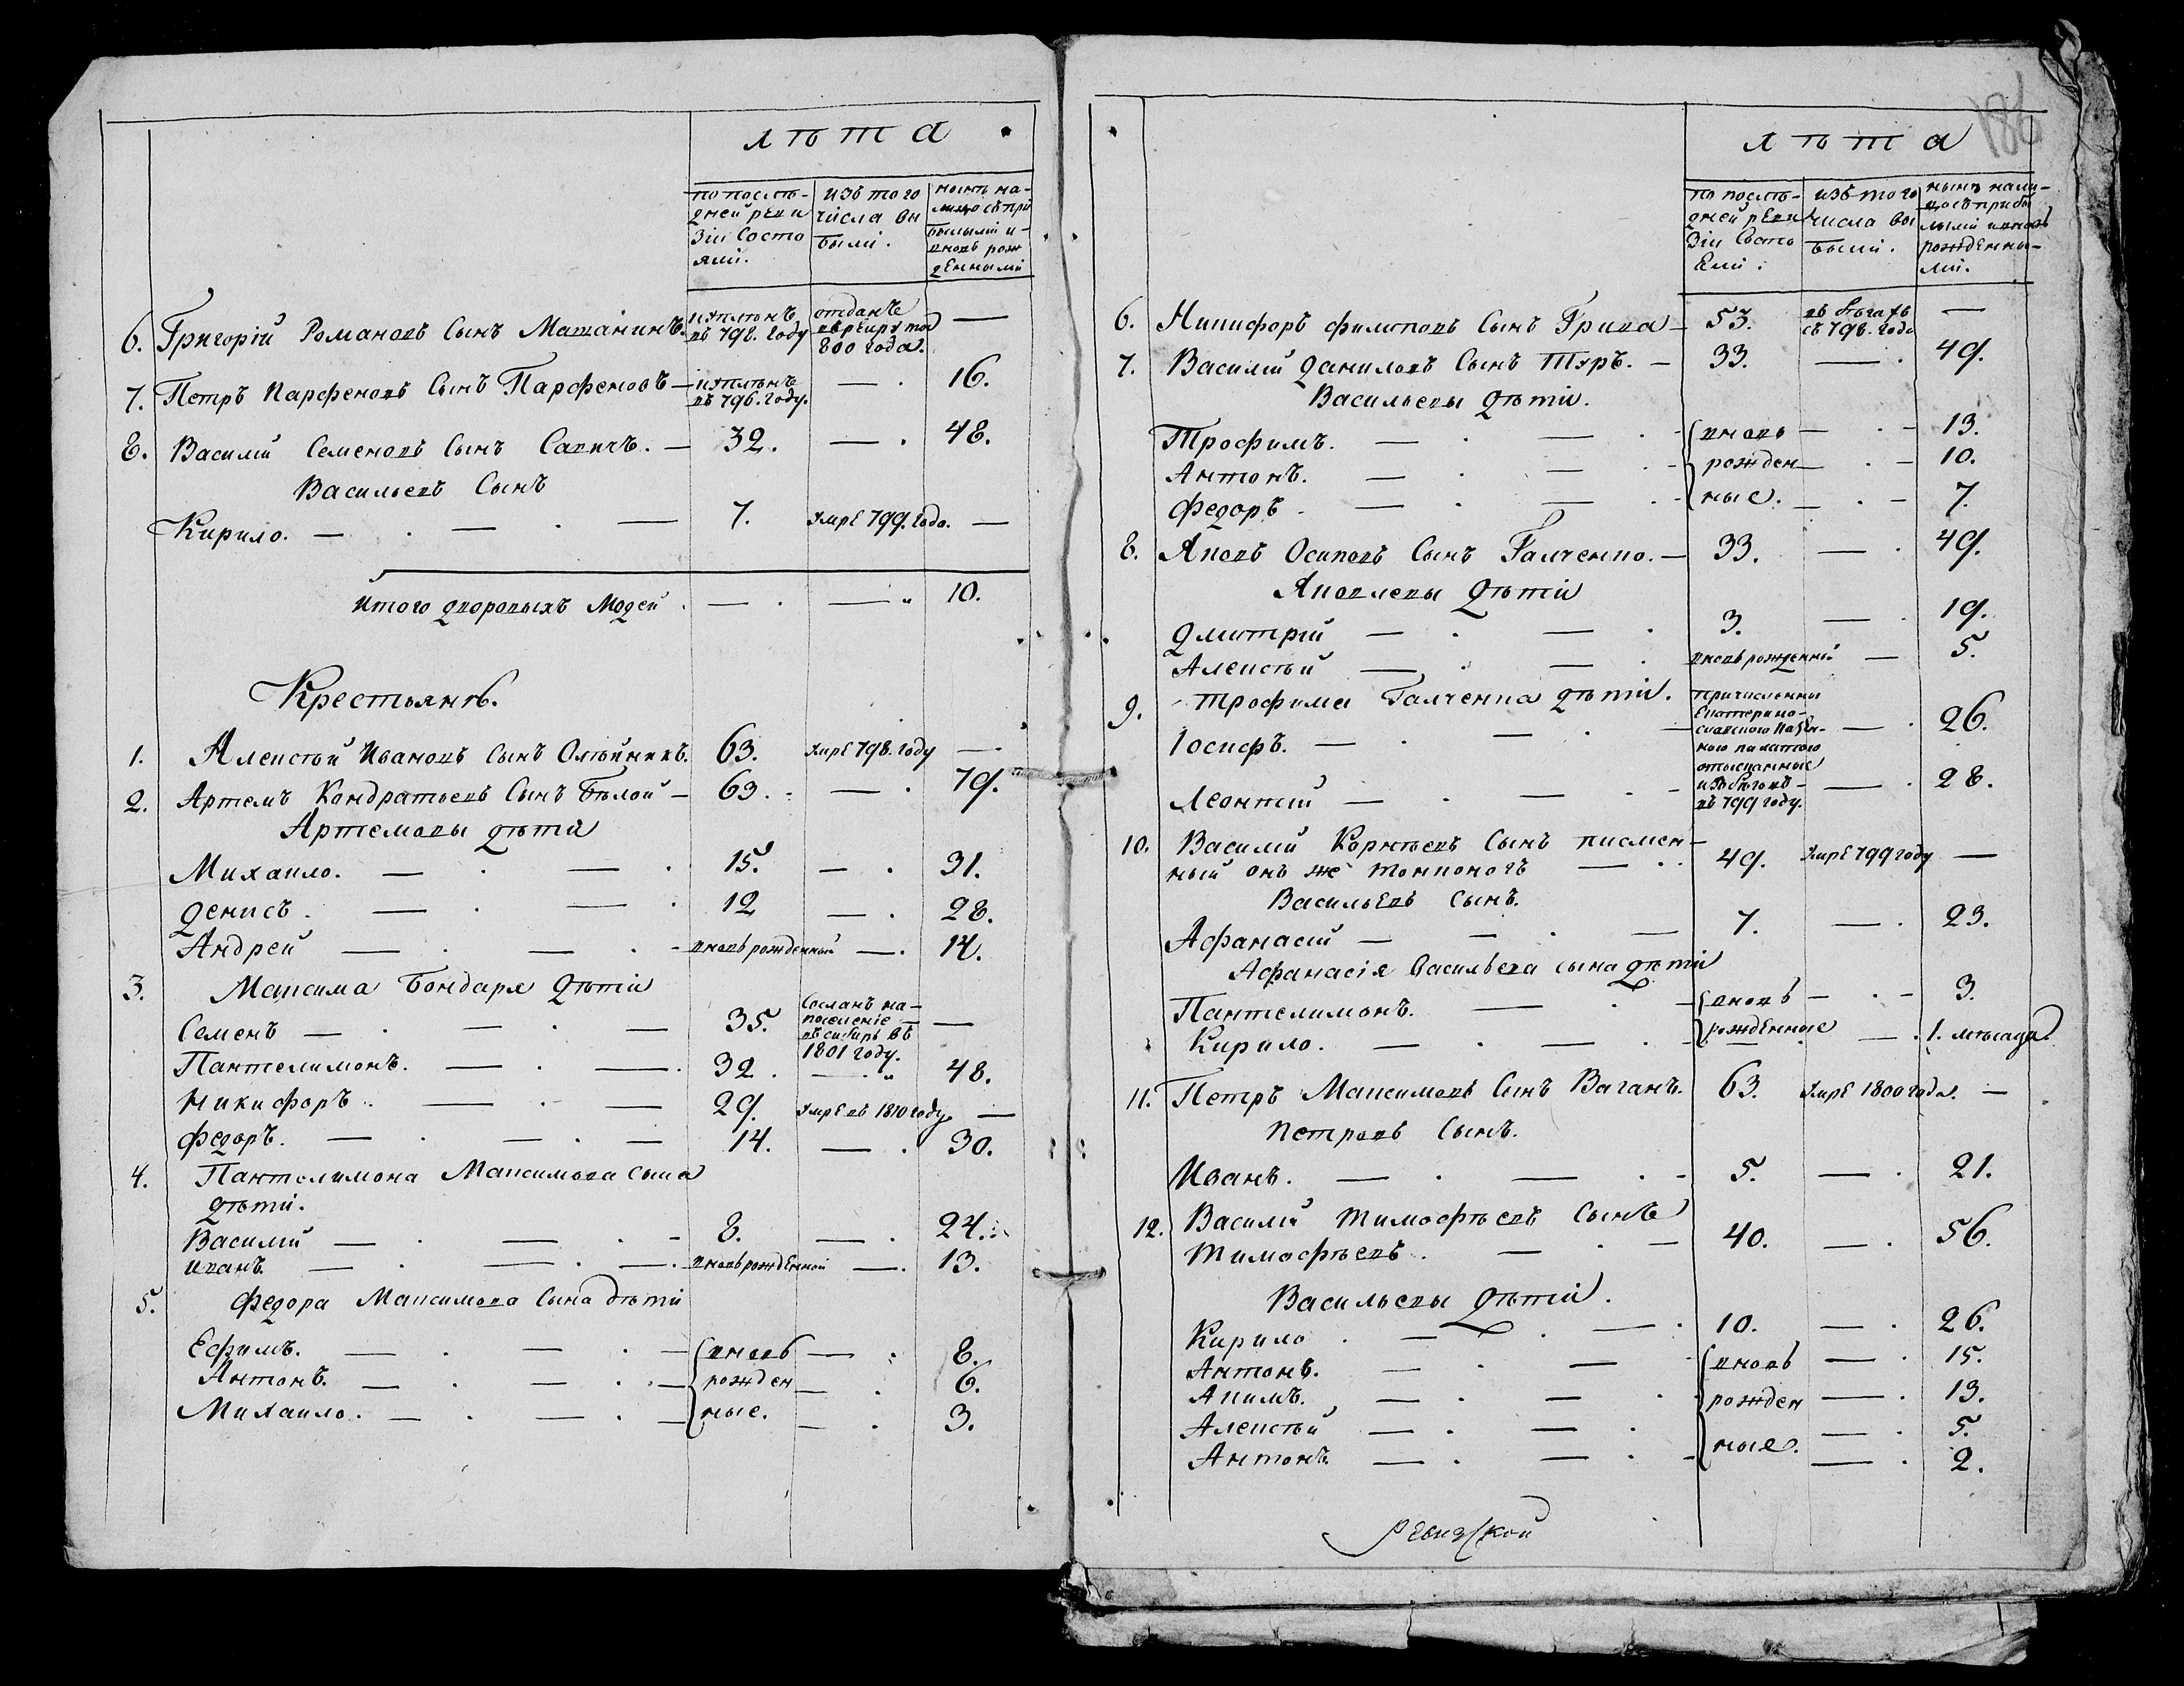 лѣта
по послѣ-
дней реви
зіи Состо
яли.
изъ того
числа вы
были.
нынѣ на-
лицо съ при
былыми и-
вновь рож
денными
6. Григорій Романовъ Сынъ Матанинъ. купленъ въ 798. году отданъ в рекруты 800 года. —
7. Петръ Парфеновъ Сынъ Парфеновъ — купленъ въ 796. году. — 16.
8. Василій Семеновъ Сынъ Савичъ. — 32. — 48.
Васильевъ Сынъ
Кирило. — 7. умре 799. года. —
Итого дворовыхъ людей — — 10.
Крестьянъ.
1. Алексѣй Ивановъ сынъ Олѣйникъ. 63. умре 798. году —
2. Артемъ Кондратьевъ Сынъ Бѣлой — 63. — 79.
Артемовы дѣти
Михаило. — 15. — 31.
Денисъ. — 12 — 28.
Андрей — вновь рожденный — 14.
3. Максима Бондаря Дѣти
Семенъ — 35. Сосланъ на-
поселеніе
въ сибирь въ
1801 году. —
Пантелимонъ. — 32. — 48.
Никифоръ. — 29. умре въ 1810 году —
Федоръ. — 14. — 30.
4. Пантелимона Максимова сына
дѣти.
Василій — 8. — 24.
Иванъ. — вновь рожденной — 13.
5. Федора Максимова Сына дѣти
Ефимъ. — вновь — 8.
Антонъ. — рожден — 6.
Михаило. — ные. — 3.
186
лѣта
по послѣ-
дней реви
зіи Состо
яли.
изъ того
числа вы
были.
нынѣ нали-
цо съ прибы
лыми и вновь
рожденны-
ми.
6. Никифоръ филиповъ Сынъ Грива — 53. въ бѣгахъ съ 798. года —
7. Василій Даниловъ Сынъ Туръ. — 33. — 49.
Васильевы Дѣти.
Трофимъ. — вновь — 13.
Антонъ. — рожден — 10.
Федоръ — ные. — 7.
8. Яковъ Осиповъ Сынъ Галченко. — 33. — 49.
Яковлевы Дѣти
Дмитрій — 3. — 19.
Алексѣй — вновь рожденный — 5.
9. Трофима Галченка дѣти. причисленны
Екатерино-
славскою казен-
ною палатою
отысканные
изъ бѣговъ-
въ 799 году.
Іосифъ. — — 26.
Леонтій — — 28.
10. Василій Корнѣевъ Сынъ писмен-
ный онъ же Тонконогъ — 49. умре 799 году —
Васильевъ Сынъ.
Афанасій — 7. — 23.
Афанасія Васильева сына дѣти
Пантелимонъ. — вновь — 3.
Кирило. — рожденные — 1. мѣсяца
11. Петръ Максимовъ Сынъ Ваганъ. 63. умре 1800 года. —
Петровъ Сынъ.
Иванъ. — 5. — 21.
12. Василій Тимофѣевъ Сынъ
Тимофѣевъ. — 40. — 56.
Васильевы Дѣти.
Кирило — 10. — 26.
Антонъ. — вновь — 15.
Акимъ. — рожден — 13.
Алексѣй — — 5.
Антонъ. — ные. — 2.